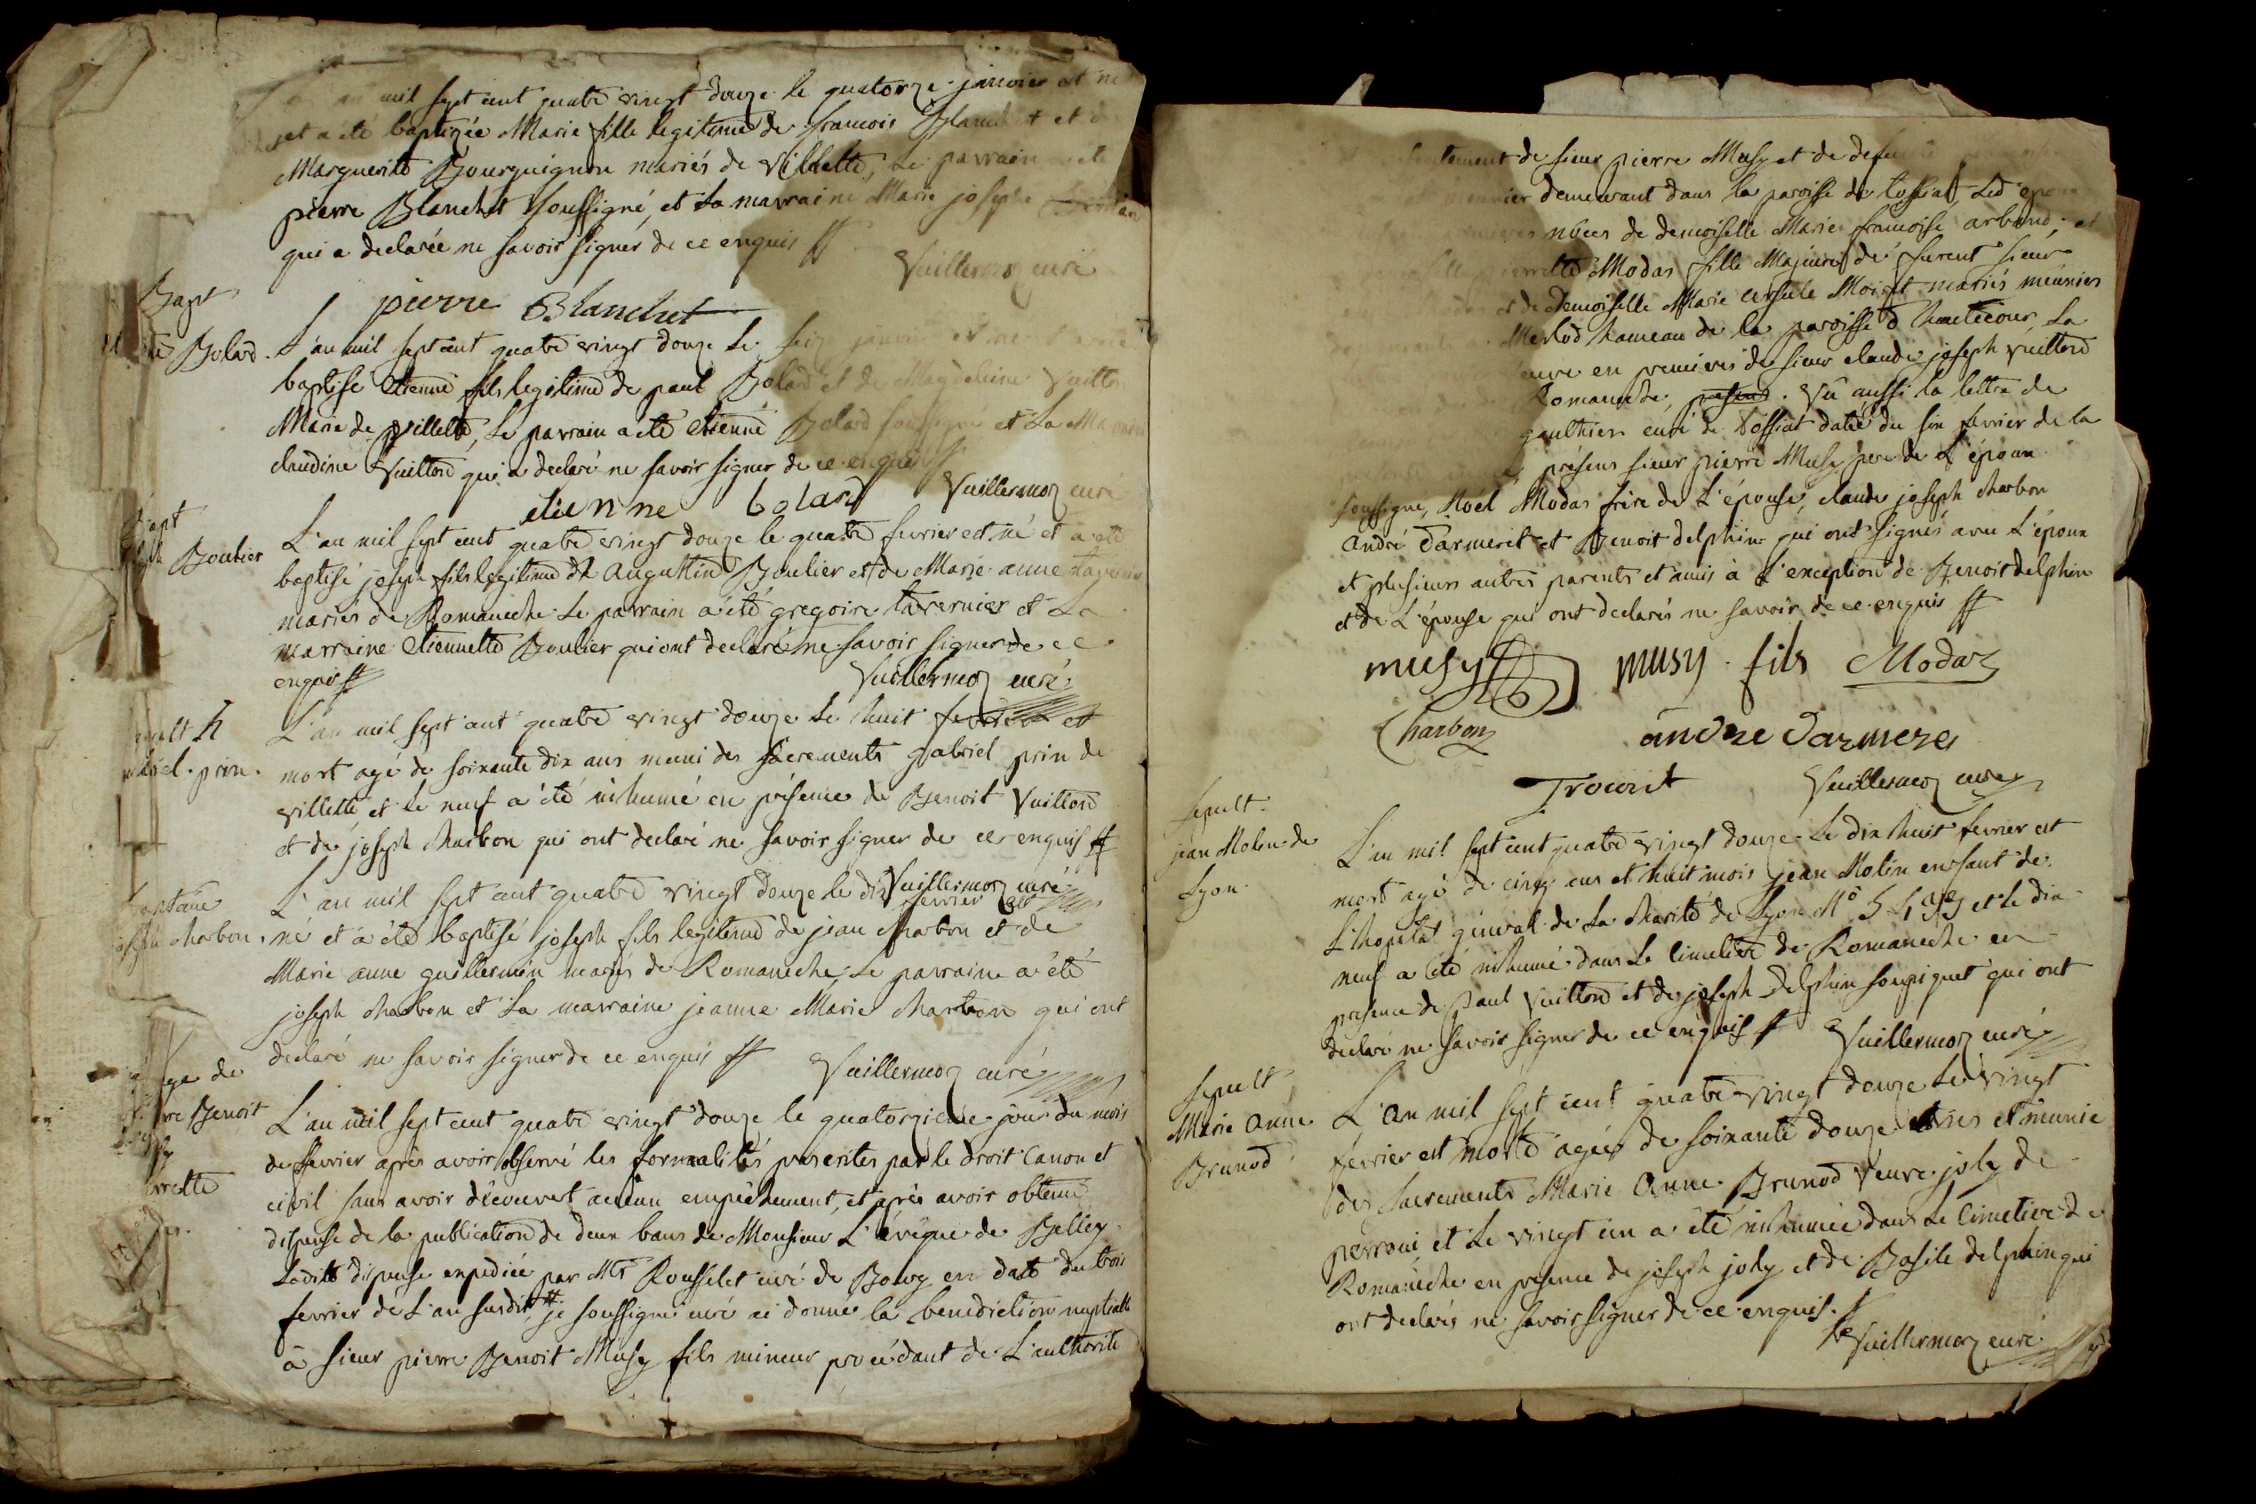 mil sept cent quatre vingt douze le quatorze janvier est né
et a été baptizée Marie fille legitime de francois Blanchet et de
Marguerite Bourguignon mariés de Villette, Le parrain a été
pierre Blanchet soussigné, et La marraine Marie josephe
qui a declarée ne savoir signer de ce enquis
Vuillermoz curé
pierre Blanchet
Bapt
Bolard.
L'an mil sept cent quatre vingt douze Le seize janvier est né
baptisé etienne fils legitime de paul Bolard et de Magdeleine Vuitton
Marie de villette, Le parrain a été etienne Bolard soussigné et La Marraine
claudine Vuitton qui a declaré ne savoir signer de ce enquis
etienne bolard Vuillermoz curé
Bapt
Boulier
L'an mil sept cent quatre vingt douze le quatre fevrier est né et a été
baptisé joseph fils legitime de Augustin Boulier et de Marie anne
mariés de Romaneche Le parrain a été gregoire tavernier et La
marraine etiennette Boulier qui ont declaré ne savoir signer de ce
enquis
Vuillermoz curé
sepult
gabriel prin.
L'an mil sept cent quatre vingt douze Le huit fevrier est
mort agé de soixante dix ans muni des sacrements gabriel prin de
villette et le neuf a été inhumé en présence de Benoit Vuitton
et de joseph charbon qui ont declaré ne savoir signer de ce enquis
Vuillermoz curé
joseph charbon.
L'an mil sept cent quatre vingt douze le dix fevrier est
né et a été baptisé joseph fils legitime de jean charbon et de
Marie anne guillermin mariés de Romaneche Le parraine a été
joseph charbon et La marraine jeanne Marie charbon qui ont
declaré ne savoir signer de ce enquis
Vuillermoz curé
de
Benoit
L'an mil sept cent quatre vingt douze le quatorzieme jour du mois
de fevrier après avoir observé les formalités prescrites par le droit Canon et
civil sans avoir découvert aucun empêchement, et après avoir obtenu
dispense de la publication de deux bans de Monsieur L'evêque de Belley
Ladite dispense expediée par Mr Rousselet curé de Bourg en date du trois
fevrier de L'an susdit, je soussigné curé ai donné la benediction nuptiale
à sieur pierre Benoit Musy fils mineur procédant de L'authorité
de sieur pierre Musy et de
demeurant dans la paroisse de tossiat, Led
nôces de demoiselle Marie francoise arband, et
Modas fille Majeure de furent sieur
et de Demoiselle Marie ursule Moiret mariés meuniers
Merlod hameau de la paroisse d'hautecour, La
en premieres de sieur claude joseph Vuitton
Romaneche, présens. Vû aussi la lettre de
gaulthier curé de Tossiat datée du six fevrier de la
présens sieur pierre Musy pere de L'époux
soussigné, Noël Modas frère de L'épouse, claude joseph charbon
andré Darmeret et Benoit delphin qui ont signés avec L'époux
et plusieurs autres parents et amis à L'exception de Benoit delphin
et de L'épouse qui ont declarés ne savoir de ce enquis
musy musy fils Modaz
Charbon andre Darmerey
Vuillermoz curé
sepult.
jean Molin de
Lyon.
L'an mil sept cent quatre vingt douze Le dix huit fevrier est
mort agé de cinq ans et huit mois jean Molin enfant de
L'hopital géneral de La charité de Lyon et le dix
neuf a été inhumé dans Le cimetière de Romaneche en
présence de paul Vuitton et de joseph delphin qui ont
declaré ne savoir signer de ce enquis Vuillermoz curé
sepult
Marie anne
Brunod
L'an mil sept cent quatre vingt douze Le vingt
fevrier est morte agée de soixante douze et munie
des sacrements Marie Anne Brunod veuve joly de
et Le vingt un a été inhumée dans Le Cimetière de
Romanêche en présence de joseph joly et de Basile delphin qui
ont declarés ne savoir signer de ce enquis.
Vuillermoz curé